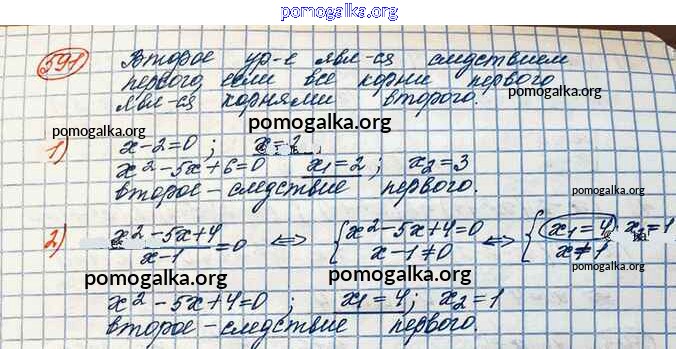 pomogalka.org
591) Второе ур-е явл-ся следствием
первого, если все корни первого
явл-ся корнями второго.
pomogalka.org
pomogalka.org
1) x-2=0 ; x=2 .
pomogalka.org
x²-5x+6=0 x₁=2 ; x₂=3
второе-следствие первого.
pomogalka.org
pomogalka.org
2) (x²-5x+4)/(x-1)=0 ⇔ {x²-5x+4=0 x-1≠0 ⇔ {x₁=4; x₂=1 x≠1
pomogalka.org
pomogalka.org
x²-5x+4=0 ; x₁=4; x₂=1
второе-следствие первого.